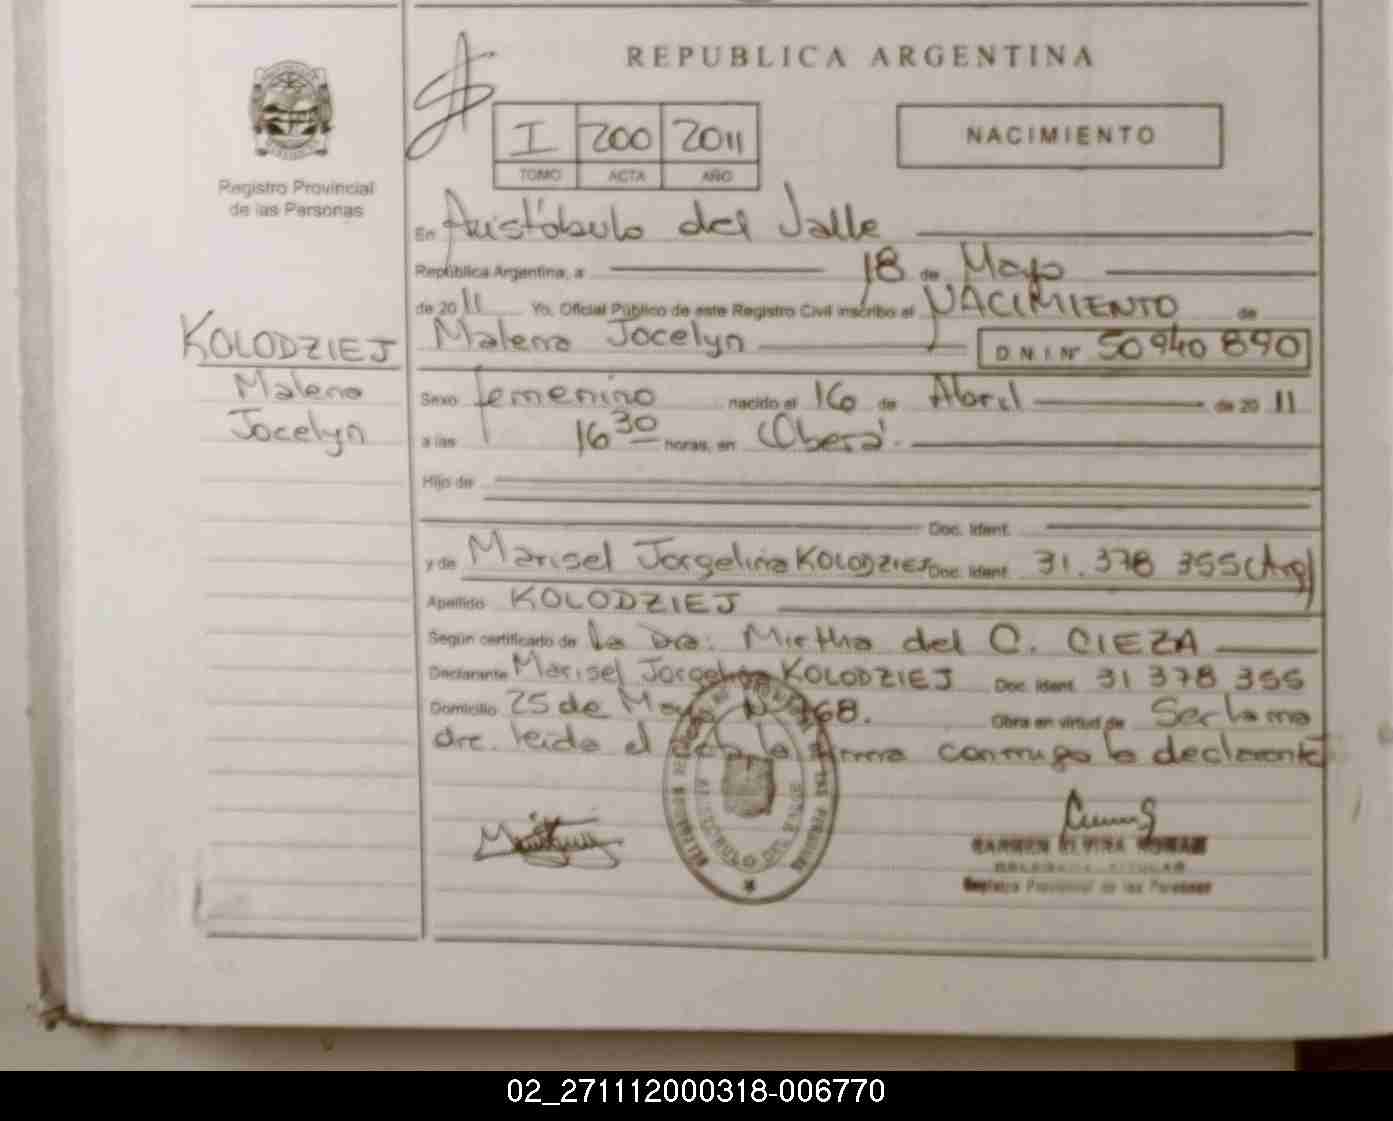 REPUBLICA ARGENTINA
I 200 2011
TOMO ACTA AÑO
NACIMIENTO
Registro Provincial
de las Personas
KOLODZIEJ
Malena
Jocelyn
En Aristóbulo del Valle
República Argentina, a 18 de Mayo
de 2011 Yo, Oficial Público de este Registro Civil inscribo el NACIMIENTO de
Malena Jocelyn D.N.I Nº 50 940 890
Sexo femenino nacido el 16 de Abril de 2011
a las 16 30 horas, en Oberá.
Hijo de
Doc. Ident.
y de Marisel Jorgelina KOLODZIEJ Doc. Ident. 31.378 355 (Arg)
Apellido KOLODZIEJ
Según certificado de la Dra: Mirtha del C. CIEZA
Declarante Marisel Jorgelina KOLODZIEJ Doc. Ident. 31 378 355
Domicilio 25 de Mayo Nº 968. Obra en virtud de Ser la ma
dre. leída el acta, la firma conmigo la declarante
ARISTOBULO DEL VALLE
CARMEN ELVIRA
DELEGADA TITULAR
Registro Provincial de las Personas
02_271112000318-006770